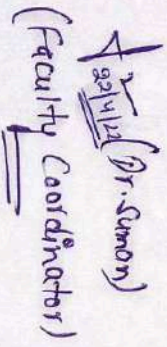 22/4/22 (Dr. Suman)
(Faculty Coordinator)